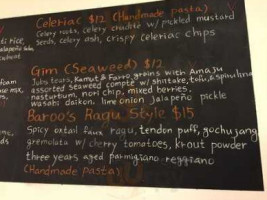 Celeriac $12 (Handmade pasta)
di rice, Celery roots, celery crudité w/ pickled mustard
Jalapeño seeds, celery ash, crispy celeriac chips
Gim (Seaweed) $12
Jobs tears, Kamut & Farro grains with Amazu
assorted Seaweed compte w/ shiitake, tofu, & spirulina
nasturtium, nori chip, mixed berries,
wasabi daikon, lime onion jalapeño pickle
Baroo's Ragu Style $15
Spicy oxtail ragu, tendon puff, gochujang
gremolata w/ cherry tomatoes, kraut powder
three years aged parmigiano reggiano
(Handmade pasta)